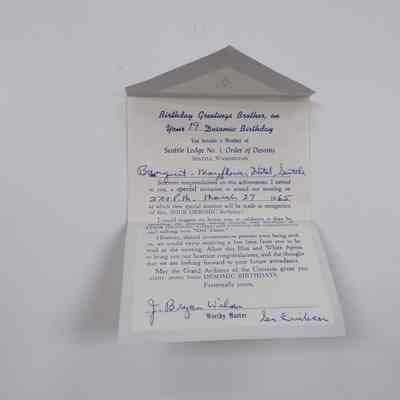 Birthday Greetings Brother, on
Your 19 Desomic Birthday
You became a Member of
Seattle Lodge No. 1, Order of Desoms
Seattle, Washington
Banquet - Mayflower Hotel, Seattle
congratulations on this achievement, I extend
to you, a special invitation to attend our meeting on
March 27 1965
at which time special mention will be made in recognition
of this, YOUR DESOMIC Birthday!
I could suggest no better way to celebrate it than by
However, should circumstances prevent your being with
us, we would enjoy receiving a few lines from you to be
read at the meeting. Allow this Blue and White Apron
to bring you our heartiest congratulations, and the thought
that we are looking forward to your future attendance.
May the Grand Architect of the Universe grant you
many more DESOMIC Birthdays
Fraternally yours,
J. Bryan Wilson
Worthy Master